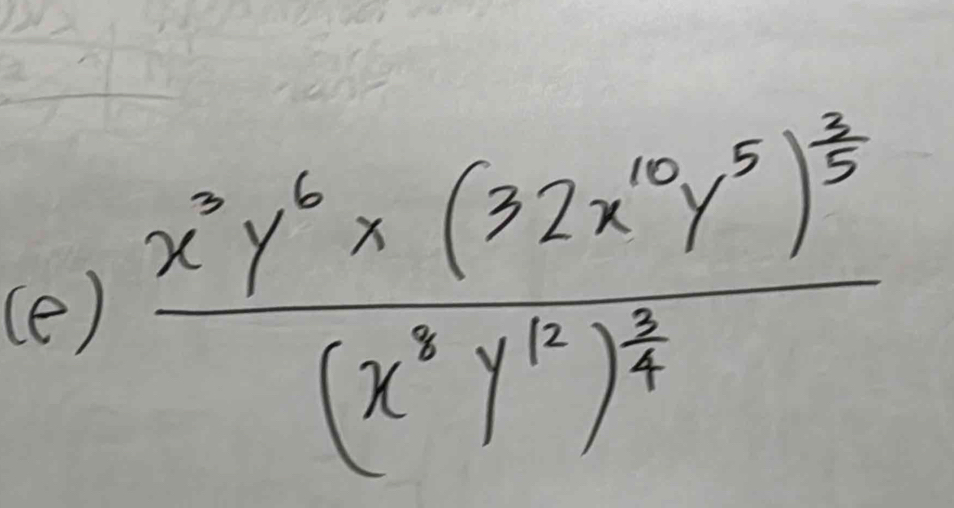 (e) \frac{x^3 y^6 \times (32x^{10}y^5)^{\frac{3}{5}}}{(x^8 y^{12})^{\frac{3}{4}}}